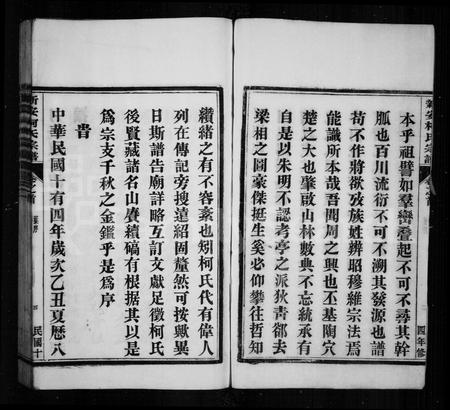 本乎祖譬如羣巒疊起不可不尋其幹
脈也百川流衍不可不溯其發源也譜
苟不作將欲攷族姓辨昭穆維宗法焉
能識所本哉吾閭周之興也丕基陶穴
楚之大也肇啟山林數典不忘統承有
自是以朱明不認考亭之派狄青卻去
梁相之圖豪傑挺生奚必仰攀往哲知
新安柯氏宗譜
四年修
新安柯氏宗譜
卷首
民國十
纘緒之有不容紊也矧柯氏代有偉人
列在傳記旁搜遠紹固釐然可按歟異
日斯譜告廟詳略互訂文獻足徵柯氏
後賢藏諸名山賡續稿有根據其以是
爲宗支千秋之金鑑乎是爲序
旹
中華民國十有四年歲次乙丑夏曆八